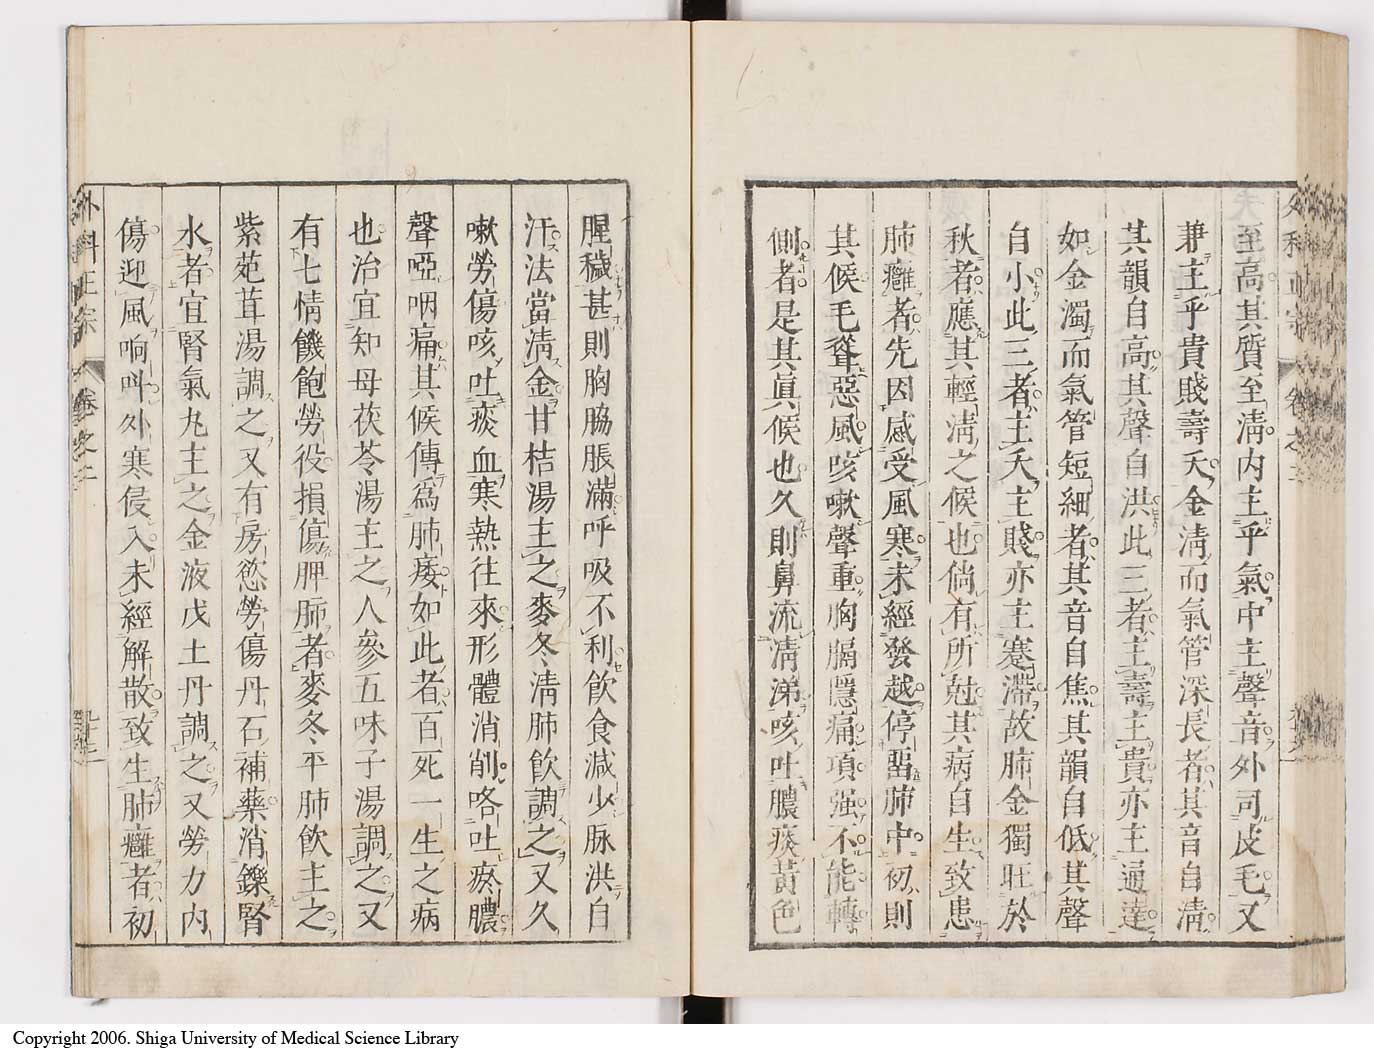 至高其質至淸内主乎氣中主聲音外司皮毛又
兼主乎貴賤壽夭金淸而氣管深長者其音自淸
其韻自高其聲自洪此三者主壽主貴亦主通達
如金濁而氣管短細者其音自焦其韻自低其聲
自小此三者主夭主賤亦主蹇滯故肺金獨旺於
秋者應其輕淸之候也倘有所尅其病自生致患
肺癰者先因感受風寒未經發越停畱肺中初則
其候毛聳惡風咳嗽聲重胸膈隱痛項强不能轉
側者是其眞候也久則鼻流淸涕咳吐膿痰黃色
腥穢甚則胸脇脹滿呼吸不利飲食減少脉洪自
汗法當淸金甘桔湯主之麥冬淸肺飲調之又久
嗽勞傷咳吐痰血寒熱往來形體消削咯吐瘀膿
聲啞咽痛其候傳爲肺痿如此者百死一生之病
也治宜知母茯苓湯主之人參五味子湯調之又
有七情饑飽勞役損傷脾肺者麥冬平肺飲主之
紫菀茸湯調之又有房慾勞傷丹石補藥消鑠腎
水者宜腎氣丸主之金液戊土丹調之又勞力内
傷迎風响叫外寒侵入未經解散致生肺癰者初
外科正宗 卷之二
Copyright 2006. Shiga University of Medical Science Library